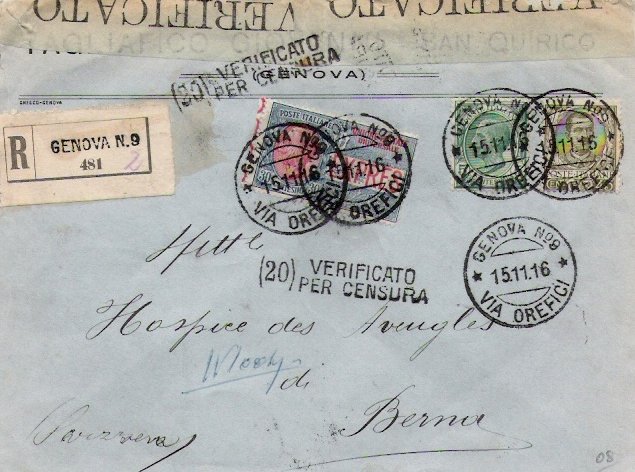 VERIFICATO VERIFICATO
TAGLIAFICO GIOVANNI - SAN QUIRICO
(GENOVA)
(30) VERIFICATO
PER CENSURA
R GENOVA N.9
481 2
POSTE ITALIANE
30
EXPRES
GENOVA No9
15.11.16
VIA OREFICI
GENOVA No9
15.11.16
VIA OREFICI
GENOVA No9
15.11.16
VIA OREFICI
GENOVA No9
15.11.16
VIA OREFICI
GENOVA No9
15.11.16
VIA OREFICI
(20) VERIFICATO
PER CENSURA
Spettle
Hospice des Aveugles
di
Berna
Svizzera
08